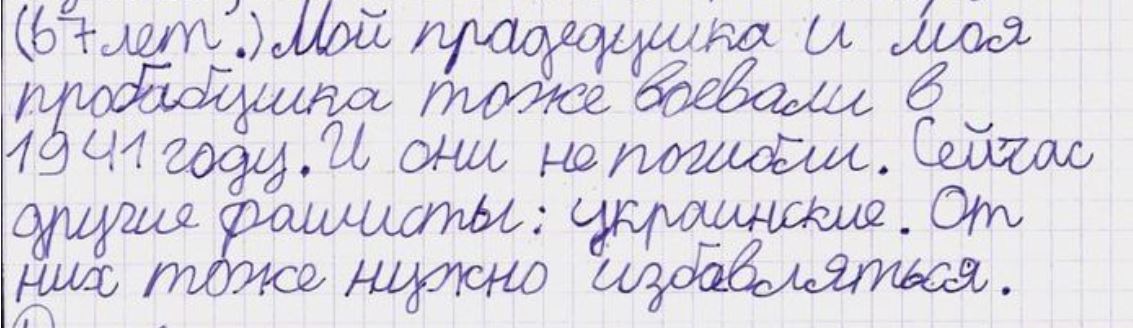 (67 лет.) Мой прадедушка и моя
пробабушка тоже воевали в
1941 году. И они не погибли. Сейчас
другие фашисты: украинские. От
них тоже нужно избавляться.